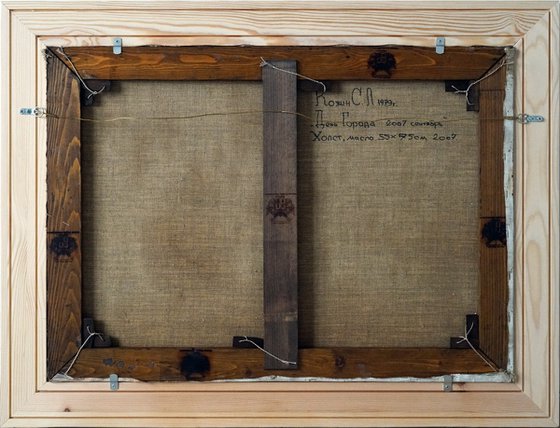 Кожин С.Л 1979г.
"День Города" 2007 сентябрь"
Холст, масло 55x75см 2007